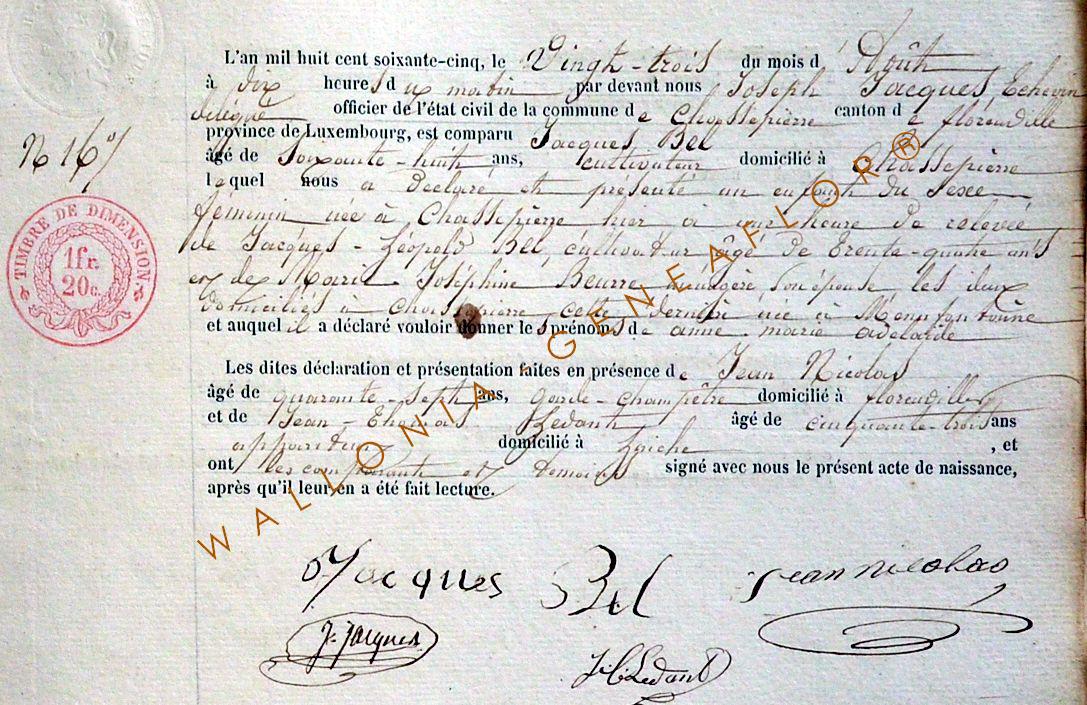 L'an mil huit cent soixante-cinq, le Vingt-trois du mois d' Août
à dix heures du matin par devant nous Joseph Jacques, Echevin
délégué officier de l'état civil de la commune de Chassepierre canton de florenville
province de Luxembourg, est comparu Jacques Bel
N 16
âgé de Soixante-huit ans, cultivateur domicilié à Chassepierre
lequel nous a declaré et présenté un enfant du sexe
féminin née à Chassepierre hier à une heure de relevée
de Jacques-Léopold Bel, cultivateur âgé de trente-quatre ans
et de Marie Joséphine Beurre ménagère, son épouse les deux
domiciliés à Chassepierre cette dernière née à
et auquel il a déclaré vouloir donner les prénoms de anne marie adelaïde
TIMBRE DE DIMENSION
1 fr.
20 c.
Les dites déclaration et présentation faites en présence de Jean Nicolas
âgé de quarante-sept ans, garde-champêtre domicilié à florenville
et de Jean-Thomas Ledant âgé de cinquante-trois ans
appariteur domicilié à , et
ont les comparants et témoins signé avec nous le présent acte de naissance,
après qu'il leur en a été fait lecture.
WALLONIA-GENEAFLOR®
Jacques Bel jean nicolas
J. Jacques
Ledant